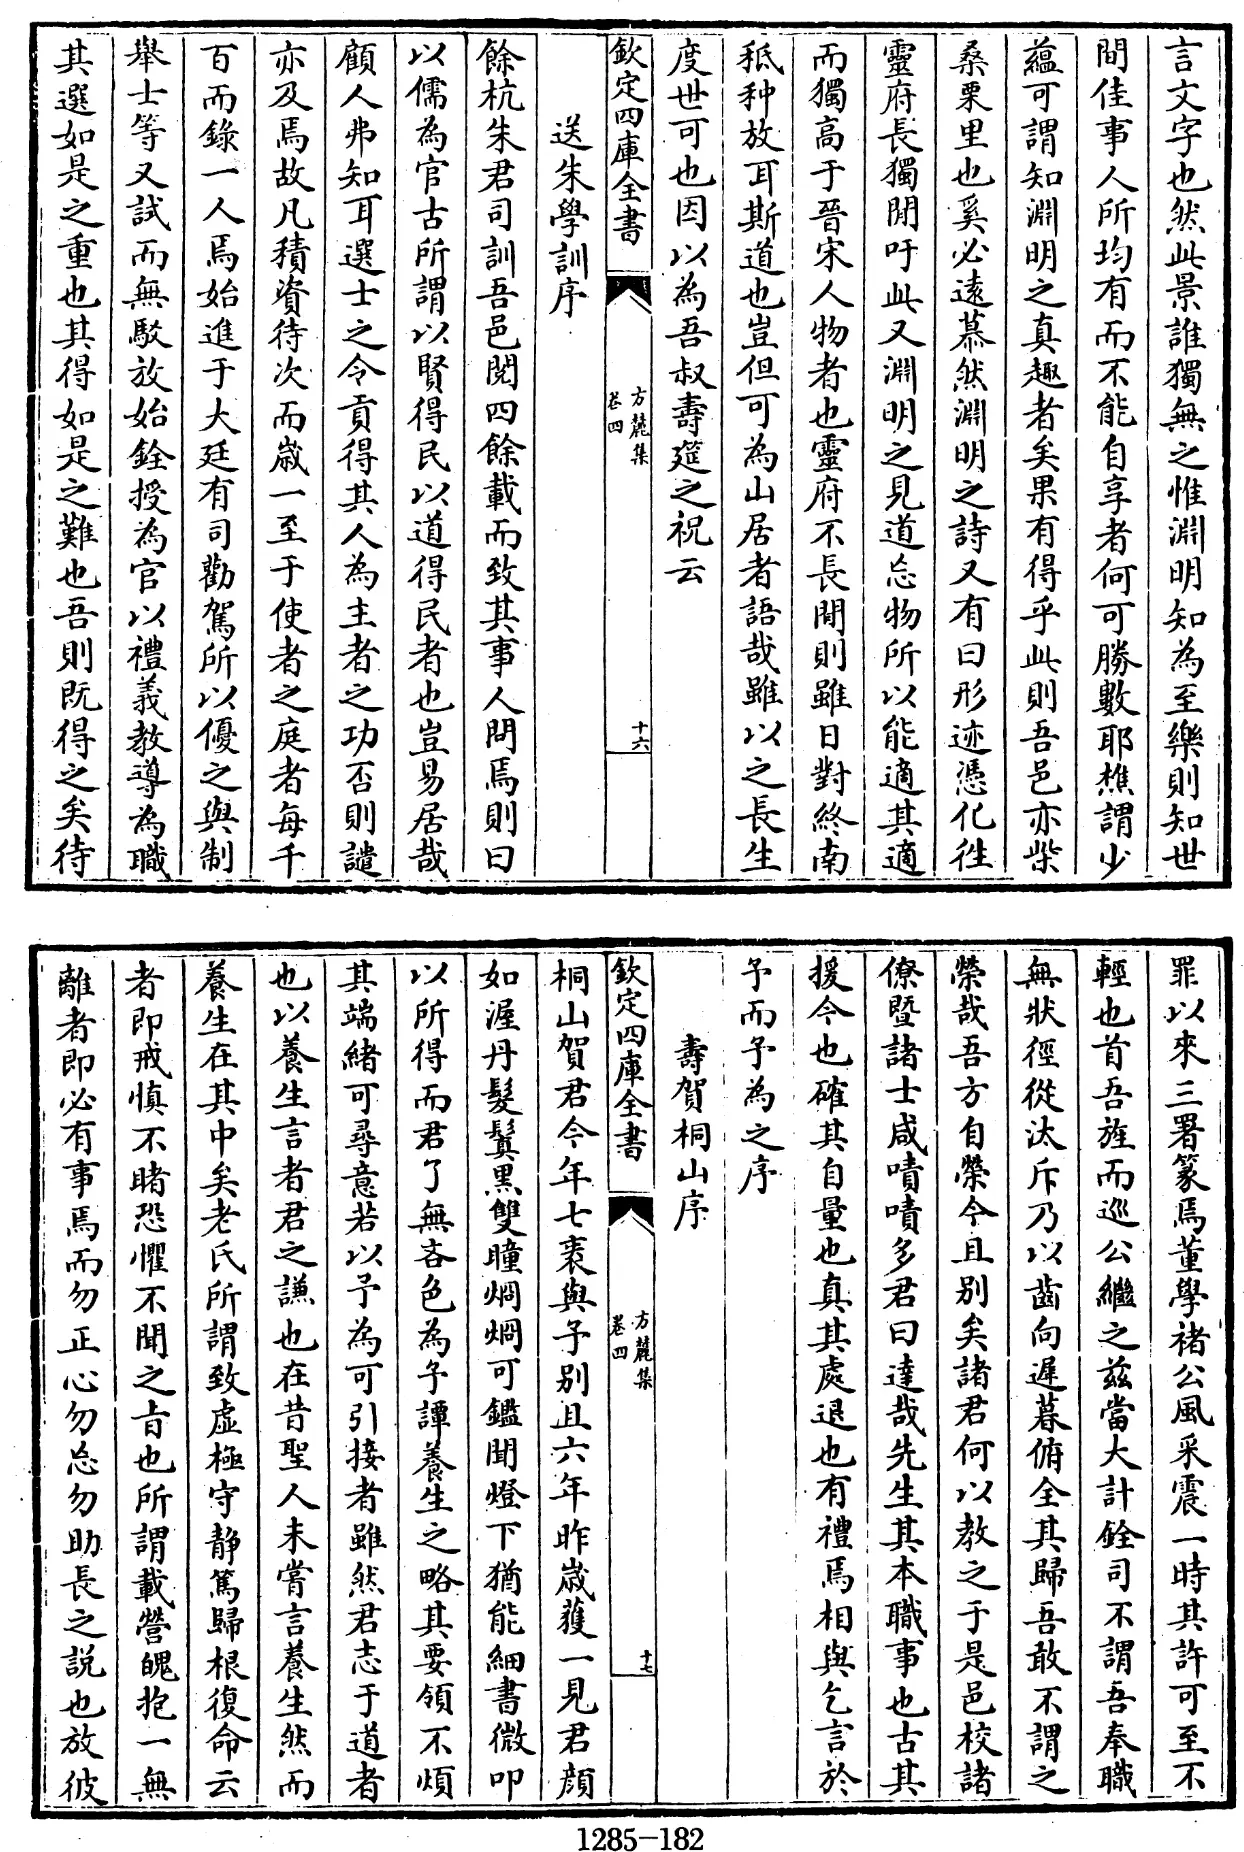 言文字也然此景誰獨無之惟淵明知為至樂則知世
間佳事人所均有而不能自享者何可勝數耶樵謂少
蘊可謂知淵明之真趣者矣果有得乎此則吾邑亦柴
桑栗里也奚必遠慕然淵明之詩又有曰形迹憑化往
靈府長獨閒吁此又淵明之見道忘物所以能適其適
而獨高于晉宋人物者也靈府不長閒則雖日對終南
秪种放耳斯道也豈但可為山居者語哉雖以之長生
度世可也因以為吾叔壽筵之祝云
欽定四庫全書
方麓集
卷四
十六
送朱學訓序
餘杭朱君司訓吾邑閱四餘載而致其事人問焉則曰
以儒為官古所謂以賢得民以道得民者也豈易居哉
顧人弗知耳選士之令貢得其人為主者之功否則譴
亦及焉故凡積資待次而歲一至于使者之庭者每千
百而錄一人焉始進于大廷有司勸駕所以優之與制
舉士等又試而無駁放始銓授為官以禮義教導為職
其選如是之重也其得如是之難也吾則既得之矣待
罪以來三署篆焉董學褚公風采震一時其許可至不
輕也首吾旌而巡公繼之茲當大計銓司不謂吾奉職
無狀徑從汰斥乃以齒向遲暮俯全其歸吾敢不謂之
榮哉吾方自榮今且別矣諸君何以教之于是邑校諸
僚暨諸士咸嘖嘖多君曰達哉先生其本職事也古其
援今也確其自量也真其處退也有禮焉相與乞言於
予而予為之序
壽賀桐山序
欽定四庫全書
方麓集
卷四
十七
桐山賀君今年七袠與予別且六年昨歲獲一見君顏
如渥丹髮鬒黑雙瞳烱烱可鑑聞燈下猶能細書微叩
以所得而君了無吝色為予譚養生之略其要領不煩
其端緒可尋意若以予為可引接者雖然君志于道者
也以養生言者君之謙也在昔聖人未嘗言養生然而
養生在其中矣老氏所謂致虛極守靜篤歸根復命云
者即戒慎不睹恐懼不聞之旨也所謂載營魄抱一無
離者即必有事焉而勿正心勿忘勿助長之說也放彼
1285-182